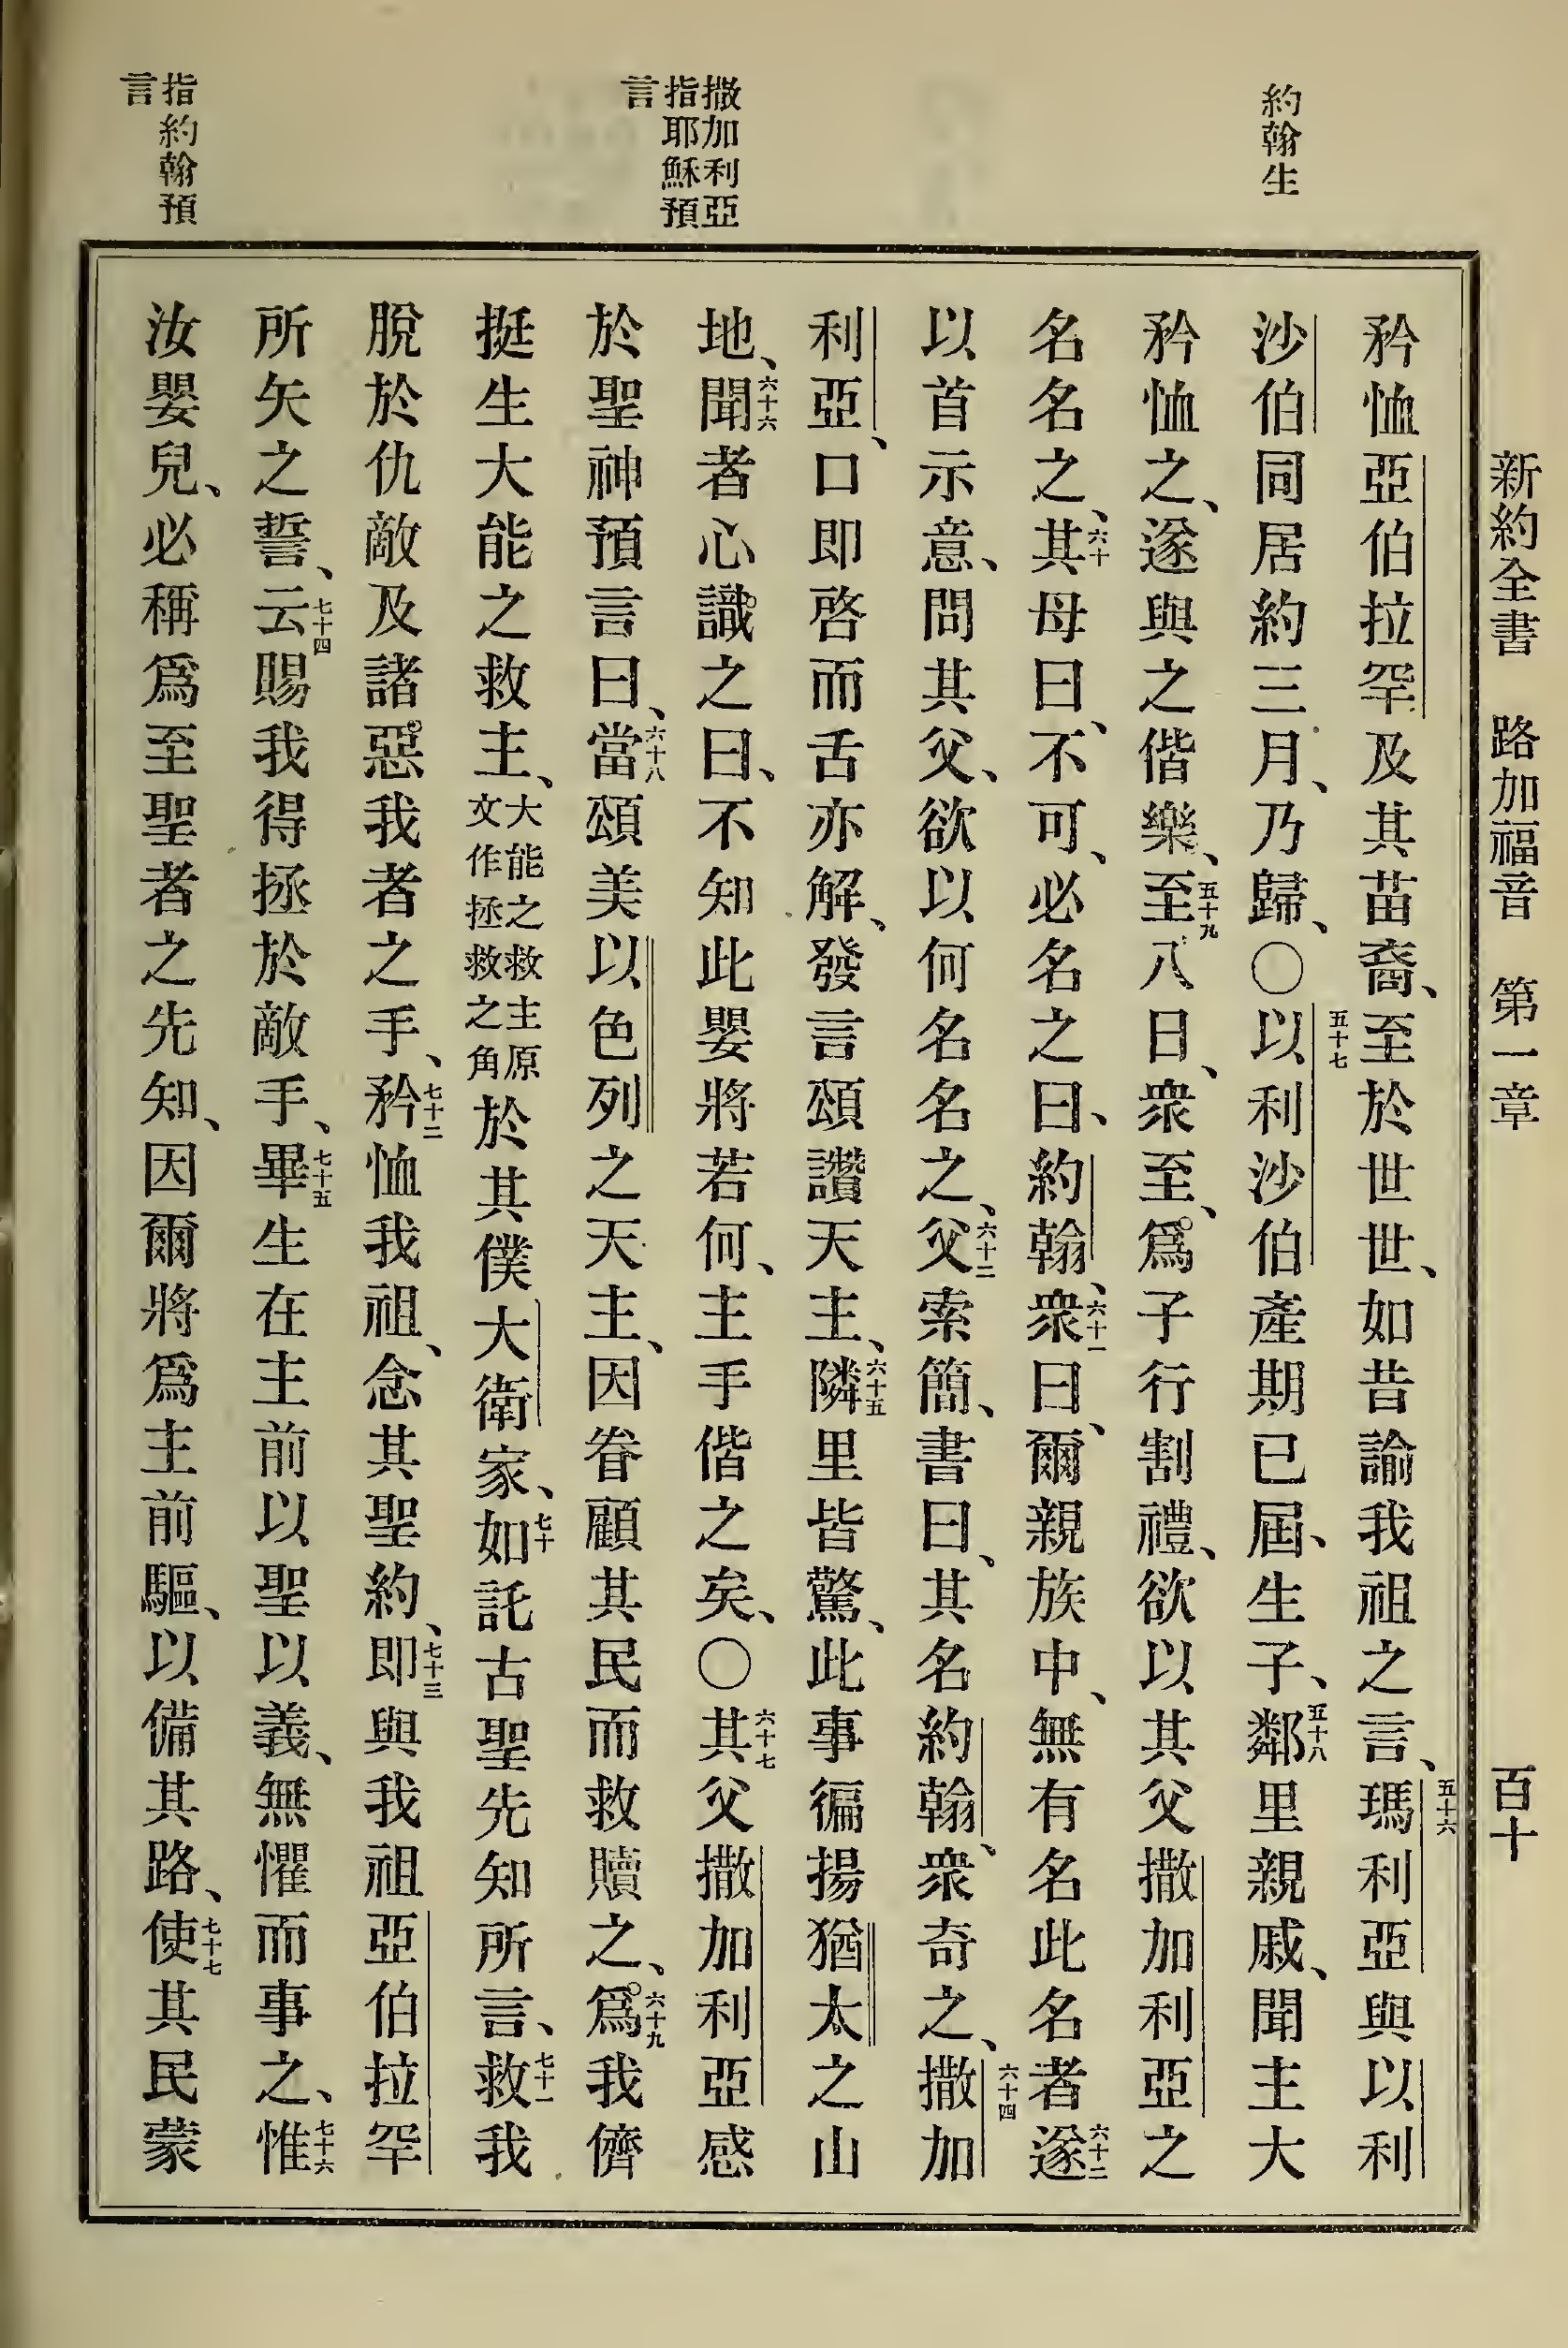 新約全書 路加福音 第一章 百十
約翰生
撒加利亞
指耶穌預
言
指約翰預
言
矜恤亞伯拉罕及其苗裔、至於世世、如昔諭我祖之言、五十六瑪利亞與以利
沙伯同居約三月、乃歸、〇五十七以利沙伯產期已屆、生子、五十八鄰里親戚、聞主大
矜恤之、遂與之偕樂、五十九至八日、衆至、爲子行割禮、欲以其父撒加利亞之
名名之、六十其母曰、不可、必名之曰、約翰、六十一衆曰、爾親族中、無有名此名者六十二遂
以首示意、問其父、欲以何名名之、六十三父索簡、書曰、其名約翰、衆奇之、六十四撒加
利亞、口即啓而舌亦解、發言頌讚天主、六十五隣里皆驚、此事徧揚猶太之山
地、六十六聞者心識之曰、不知此嬰將若何、主手偕之矣、〇六十七其父撒加利亞感
於聖神預言曰、六十八當頌美以色列之天主、因眷顧其民而救贖之、六十九爲我儕
挺生大能之救主、大能之救主原文作拯救之角於其僕大衛家、七十如託古聖先知所言、七十一救我
脫於仇敵及諸惡我者之手、七十二矜恤我祖、念其聖約、七十三即與我祖亞伯拉罕
所矢之誓、七十四云賜我得拯於敵手、七十五畢生在主前以聖以義、無懼而事之、七十六惟
汝嬰兒、必稱爲至聖者之先知、因爾將爲主前驅、以備其路、七十七使其民蒙